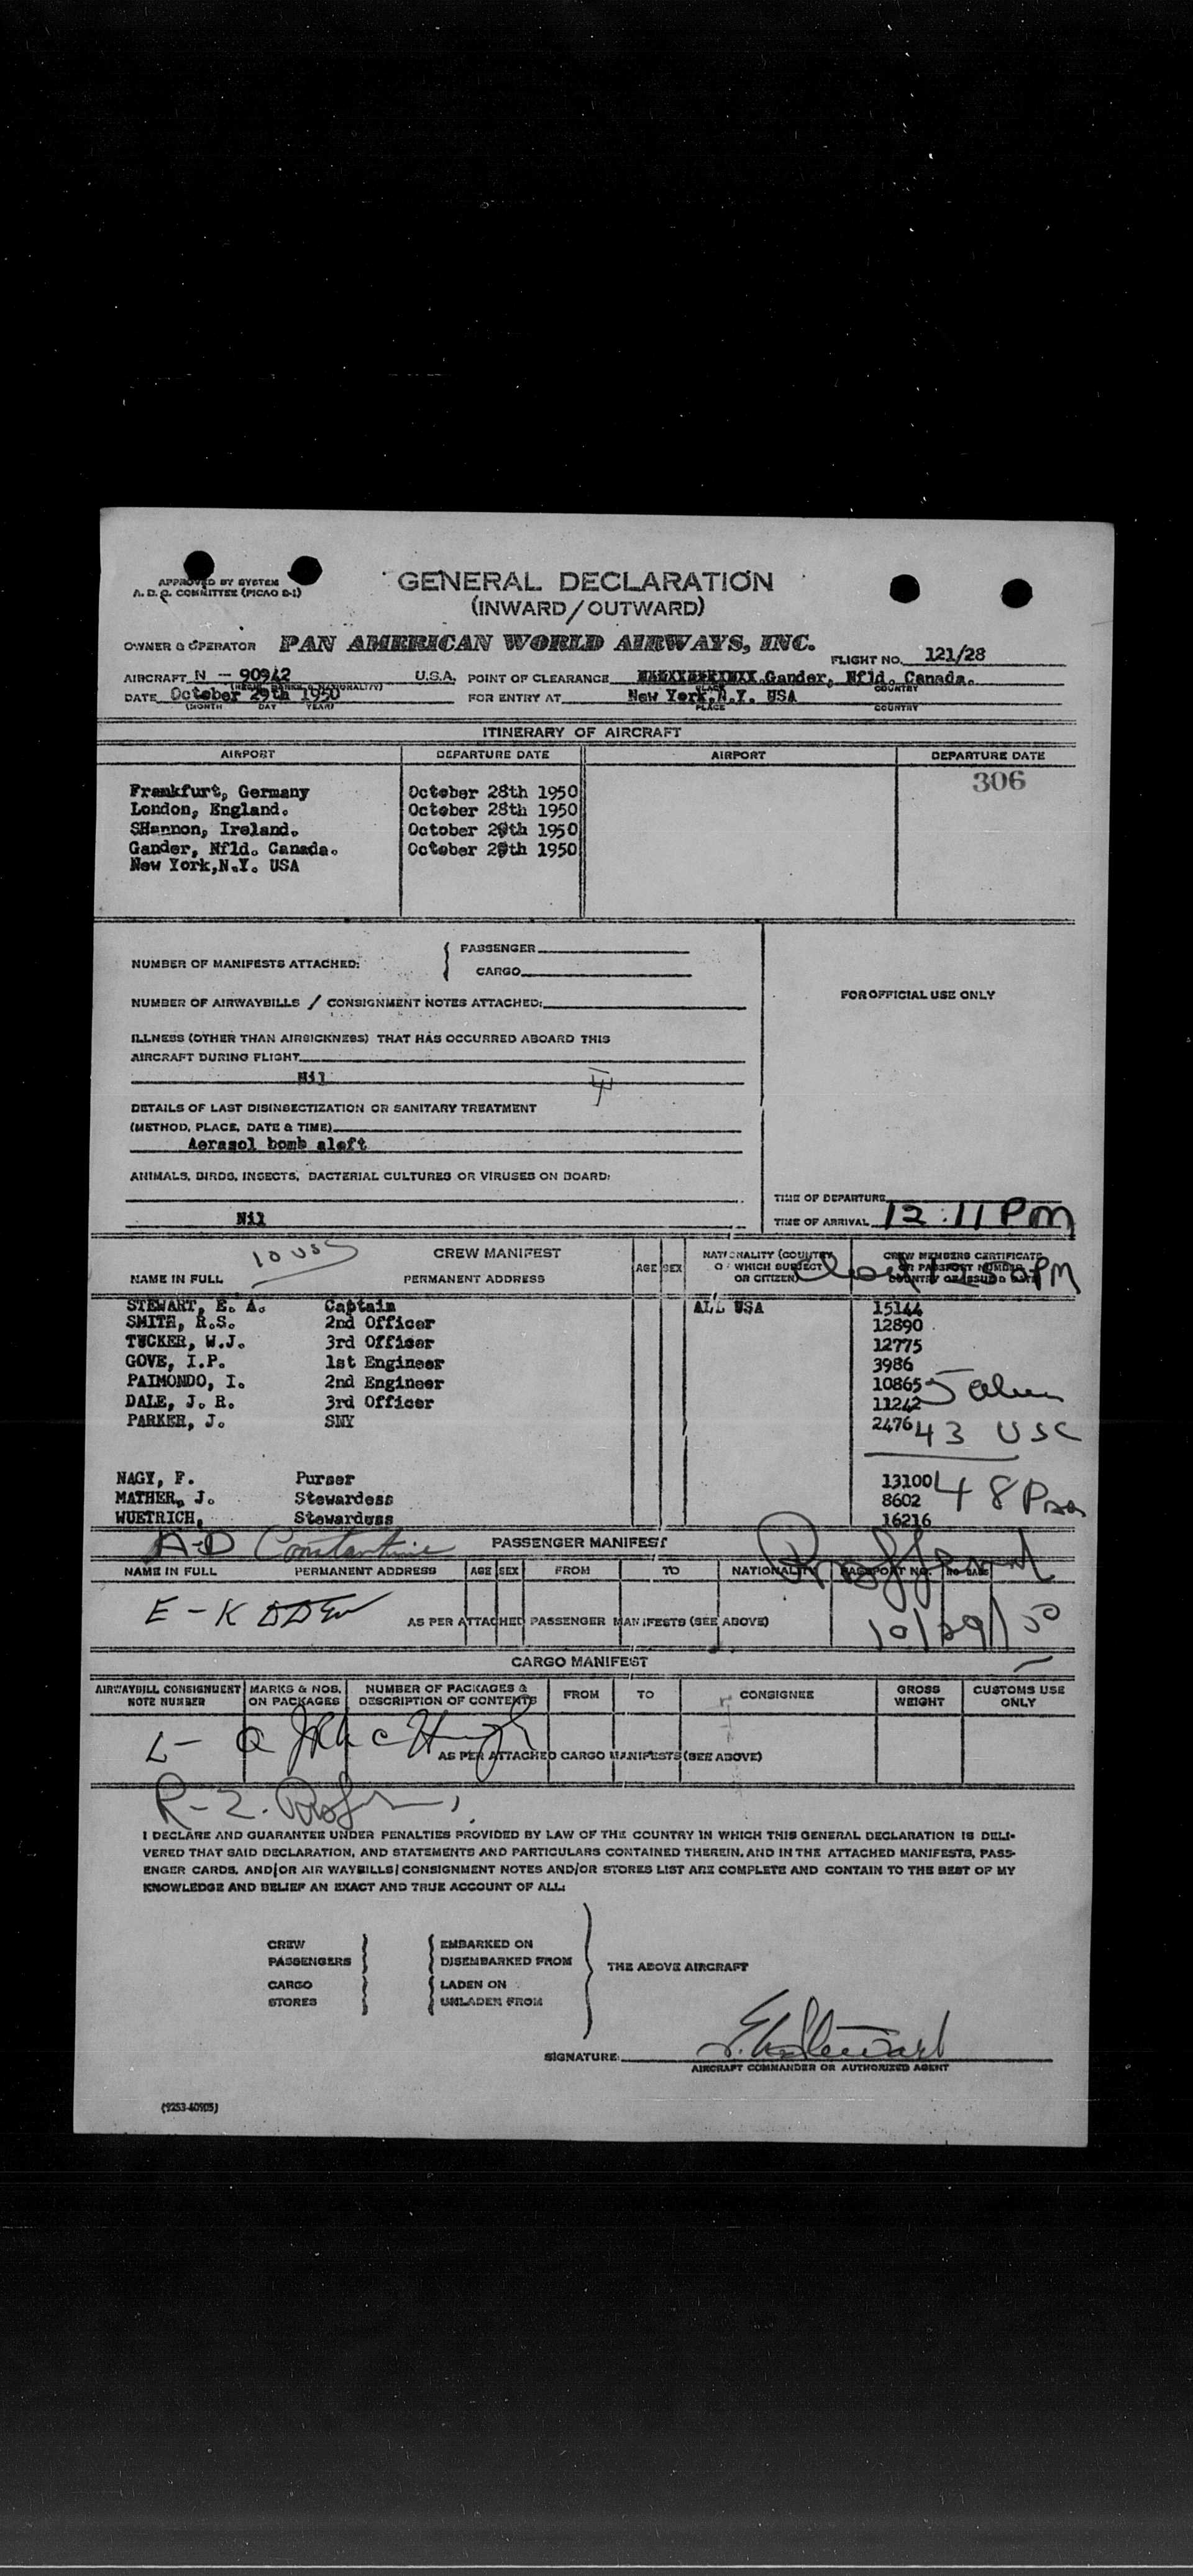 APPROVED BY SYSTEM
A. D. Q. COMMITTEE (PICAO S-1)
GENERAL DECLARATION
(INWARD/OUTWARD)
OWNER & OPERATOR PAN AMERICAN WORLD AIRWAYS, INC.
FLIGHT NO. 121/28
AIRCRAFT N - 90942 U.S.A. POINT OF CLEARANCE Gander, Nfld. Canada.
(REG. MARKS & NATIONALITY) PLACE COUNTRY
DATE October 29th 1950 FOR ENTRY AT New York,N.Y. USA
(MONTH DAY YEAR) PLACE COUNTRY
ITINERARY OF AIRCRAFT
AIRPORT DEPARTURE DATE AIRPORT DEPARTURE DATE
306
Frankfurt, Germany October 28th 1950
London, England. October 28th 1950
SHannon, Ireland. October 29th 1950
Gander, Nfld. Canada. October 29th 1950
New York,N.Y. USA
NUMBER OF MANIFESTS ATTACHED: { PASSENGER
CARGO
FOR OFFICIAL USE ONLY
NUMBER OF AIRWAYBILLS / CONSIGNMENT NOTES ATTACHED:
ILLNESS (OTHER THAN AIRSICKNESS) THAT HAS OCCURRED ABOARD THIS
AIRCRAFT DURING FLIGHT
Nil
DETAILS OF LAST DISINSECTIZATION OR SANITARY TREATMENT
(METHOD, PLACE, DATE & TIME)
Aerasol bomb aloft
ANIMALS, BIRDS, INSECTS, BACTERIAL CULTURES OR VIRUSES ON BOARD:
Nil
TIME OF DEPARTURE
TIME OF ARRIVAL 12:11 PM
10 USC
CREW MANIFEST
NAME IN FULL PERMANENT ADDRESS AGE SEX NATIONALITY (COUNTRY OF WHICH SUBJECT OR CITIZEN) CREW MEMBERS CERTIFICATE OR PASSPORT NUMBER COUNTRY OF ISSUE & DATE
STEWART, E. A. Captain ALL USA 15144
SMITH, R.S. 2nd Officer 12890
TUCKER, W.J. 3rd Officer 12775
GOVE, I.P. 1st Engineer 3986
PAIMONDO, I. 2nd Engineer 10865
DALE, J. R. 3rd Officer 11242
PARKER, J. SNY 2476
5 alien
43 USC
48 Pass
NAGY, F. Purser 13100
MATHER, J. Stewardess 8602
WUETRICH, Stewardess 16216
A-D Constantine
PASSENGER MANIFEST
NAME IN FULL PERMANENT ADDRESS AGE SEX FROM TO NATIONALITY PASSPORT NO.
E - K
AS PER ATTACHED PASSENGER MANIFESTS (SEE ABOVE)
10/29/50
CARGO MANIFEST
AIRWAYBILL CONSIGNMENT NOTE NUMBER MARKS & NOS. ON PACKAGES NUMBER OF PACKAGES & DESCRIPTION OF CONTENTS FROM TO CONSIGNEE GROSS WEIGHT CUSTOMS USE ONLY
L - Q
AS PER ATTACHED CARGO MANIFESTS (SEE ABOVE)
R - Z.
I DECLARE AND GUARANTEE UNDER PENALTIES PROVIDED BY LAW OF THE COUNTRY IN WHICH THIS GENERAL DECLARATION IS DELI-
VERED THAT SAID DECLARATION, AND STATEMENTS AND PARTICULARS CONTAINED THEREIN, AND IN THE ATTACHED MANIFESTS, PASS-
ENGER CARDS, AND/OR AIR WAYBILLS/CONSIGNMENT NOTES AND/OR STORES LIST ARE COMPLETE AND CONTAIN TO THE BEST OF MY
KNOWLEDGE AND BELIEF AN EXACT AND TRUE ACCOUNT OF ALL:
CREW EMBARKED ON
PASSENGERS DISEMBARKED FROM THE ABOVE AIRCRAFT
CARGO LADEN ON
STORES UNLADEN FROM
SIGNATURE: E. A. Stewart
AIRCRAFT COMMANDER OR AUTHORIZED AGENT
(9253-40905)